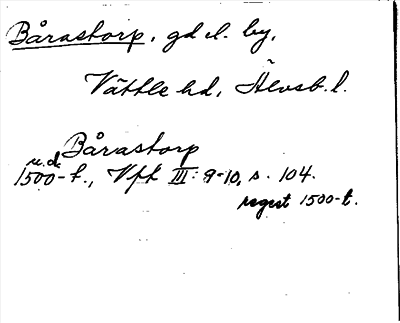 Bårastorp, gd el. by,
Vättle hd, Älvsb. l.
Bårastorp
u.d. 1500-t., Vfk III: 9-10, s. 104.
regest 1500-t.